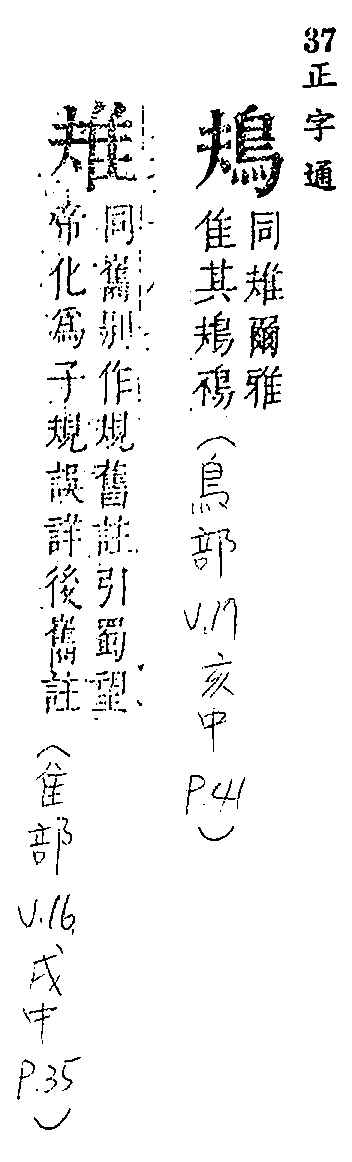 37正字通
鳺
同䧸爾雅
隹其鳺鴀
(鳥部 V.17 亥中 P.41)
䧸
同巂别作規舊註引蜀望
帝化為子規誤詳後巂註
(隹部 V.16 戌中 P.35)